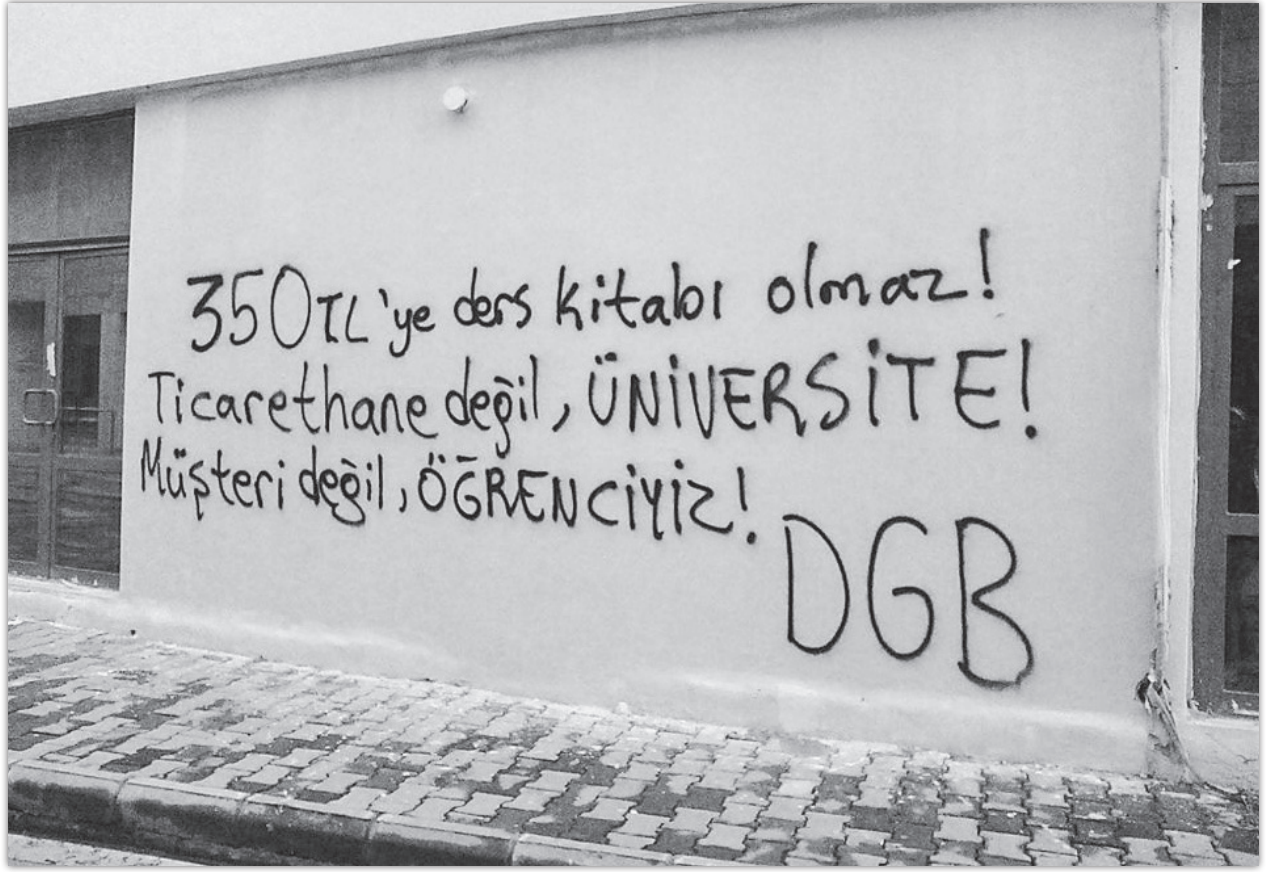 350 TL'ye ders kitabı olmaz!
Ticarethane değil, ÜNİVERSİTE!
Müşteri değil, ÖĞRENCİYİZ!
DGB